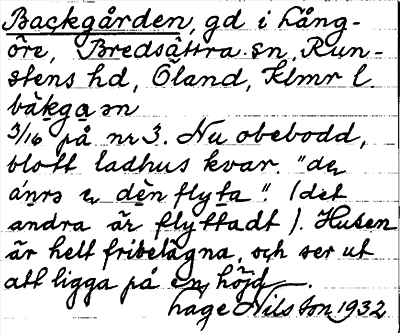 Backgården, gd i Lång-
öre, Bredsättra sn, Run-
stens hd, Öland, Klmr l.
bàkgaɳ
3/16 på nr 3. Nu obebodd,
blott ladhus kvar. "de
ánrs e dèn flyta". (det
andra är flyttadt). Husen
är helt fribelägna, och ser ut
att ligga på en höjd.
Hage Nilsson 1932